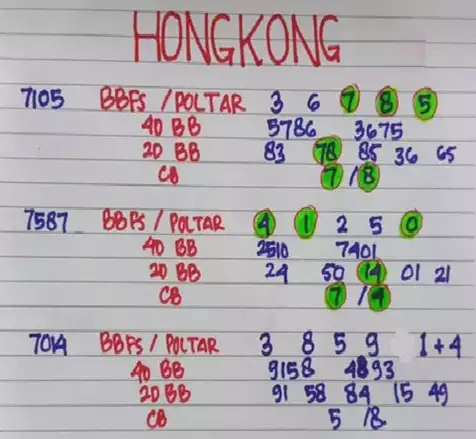 HONGKONG
7105 BBFS / POLTAR 3 6 7 8 5
4D BB 5786 3675
2D BB 83 78 85 36 65
CB 7 / 8
7587 BBFS / POLTAR 4 1 2 5 0
4D BB 2510 7401
2D BB 24 50 14 01 21
CB 7 / 4
7014 BBFS / POLTAR 3 8 5 9 1+4
4D BB 9158 4893
2D BB 91 58 84 15 49
CB 5 / 8